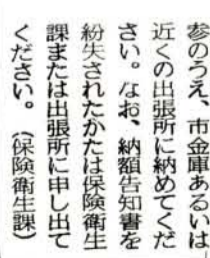 参のうえ、市金庫あるいは
近くの出張所に納めてくだ
さい。なお、納額告知書を
紛失されたかたは保険衛生
課または出張所に申し出て
ください。（保険衛生課）